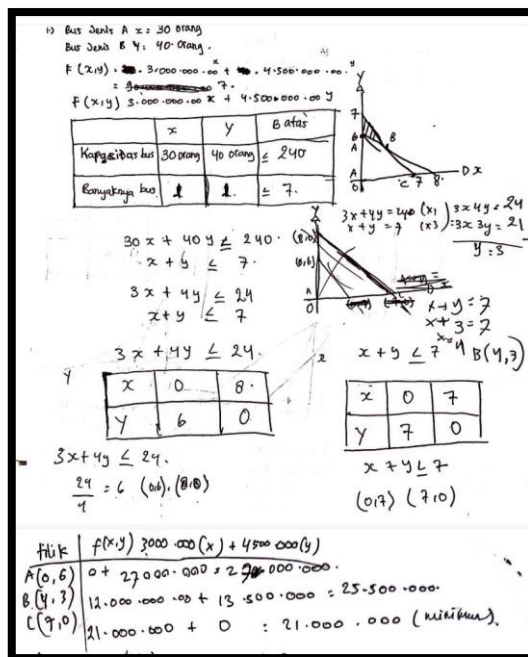 1) Bus Jenis A x = 30 orang
Bus Jenis B y = 40 orang.
F(x,y) = 3.000.000.00 x + 4.500.000.00
= 7.
F(x,y) 3.000.000.00 x + 4.500.000.00 y
x y Batas
Kapasitas bus 30 orang 40 orang ≤ 240
Banyaknya bus 1 1 ≤ 7.
y
7
6
A
B
A
0
C 7 8
D x
30x + 40y ≤ 240.
x + y ≤ 7.
3x + 4y ≤ 24
x + y ≤ 7
(8,0)
(0,6)
A
0
3x + 4y = 240 (x1) 3x 4y = 24
x + y = 7 (x3) = 3x 3y = 21
y = 3
x + y = 7
x + 3 = 7
x = 4 B(4,3)
3x + 4y ≤ 24.
Y
x 0 8.
Y 6 0
3x + 4y ≤ 24.
24/4 = 6 (0,6), (8,0)
x
x + y ≤ 7
x 0 7
Y 7 0
x + y ≤ 7
(0,7) (7,0)
titik f(x,y) 3000.000(x) + 4500.000(y)
A(0,6) 0 + 27000.000 = 27.000.000.
B(4,3) 12.000.000.00 + 13.500.000 = 25.500.000.
C(7,0) 21.000.000 + 0 = 21.000.000 (minimum).